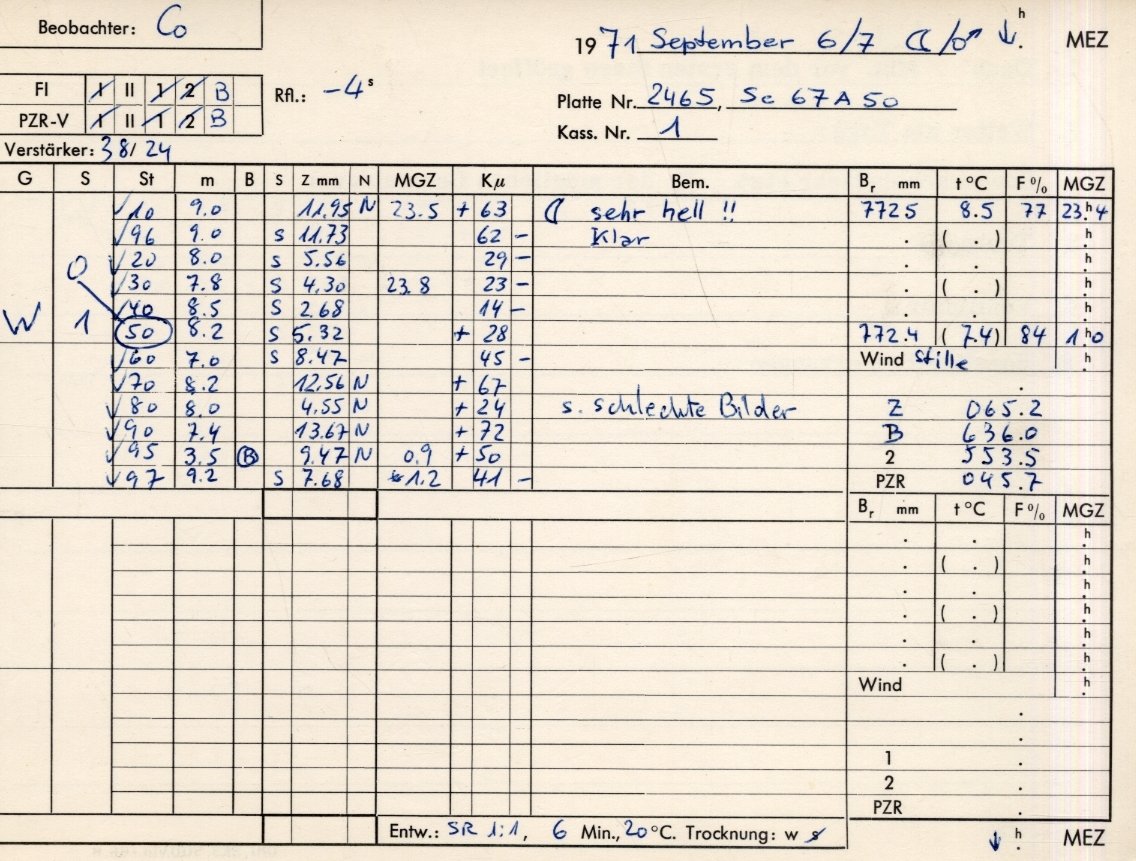 Beobachter: Co
h
1971 September 6/7 ☾/♂ ↓. MEZ
FI I II 1 2 B Rfl.: -4 s
Platte Nr. 2465, Sc 67A50
PZR-V I II 1 2 B
Kass. Nr. 1
Verstärker: 38/24
G S St m B S Z mm N MGZ Kμ Bem. Br mm t °C F % MGZ
√10 9.0 11.95 N 23.5 + 63 ☾ sehr hell !! 772.5 8.5 77 23.h4
√96 9.0 S 11.73 62 - Klar . ( . ) .h
0 √20 8.0 S 5.56 29 - . . .h
√30 7.8 S 4.30 23.8 23 - . ( . ) .h
√40 8.5 S 2.68 14 - . . .h
W 1 50 8.2 S 5.32 + 28 772.4 (7.4) 84 1.h0
√60 7.0 S 8.47 45 - Wind Stille .h
√70 8.2 12.56 N + 67 .
√80 8.0 4.55 N + 24 s. schlechte Bilder Z 065.2
√90 7.4 13.67 N + 72 B 636.0
√95 3.5 B 9.47 N 0.9 + 50 2 553.5
√97 9.2 S 7.68 1.2 41 - PZR 045.7
Br mm t °C F % MGZ
. . .h
. ( . ) .h
. . .h
. ( . ) .h
. . .h
. ( . ) .h
Wind .h
.
.
1 .
2 .
PZR .
Entw.: SR 1:1, 6 Min., 20 °C. Trocknung: w s ↓ .h MEZ